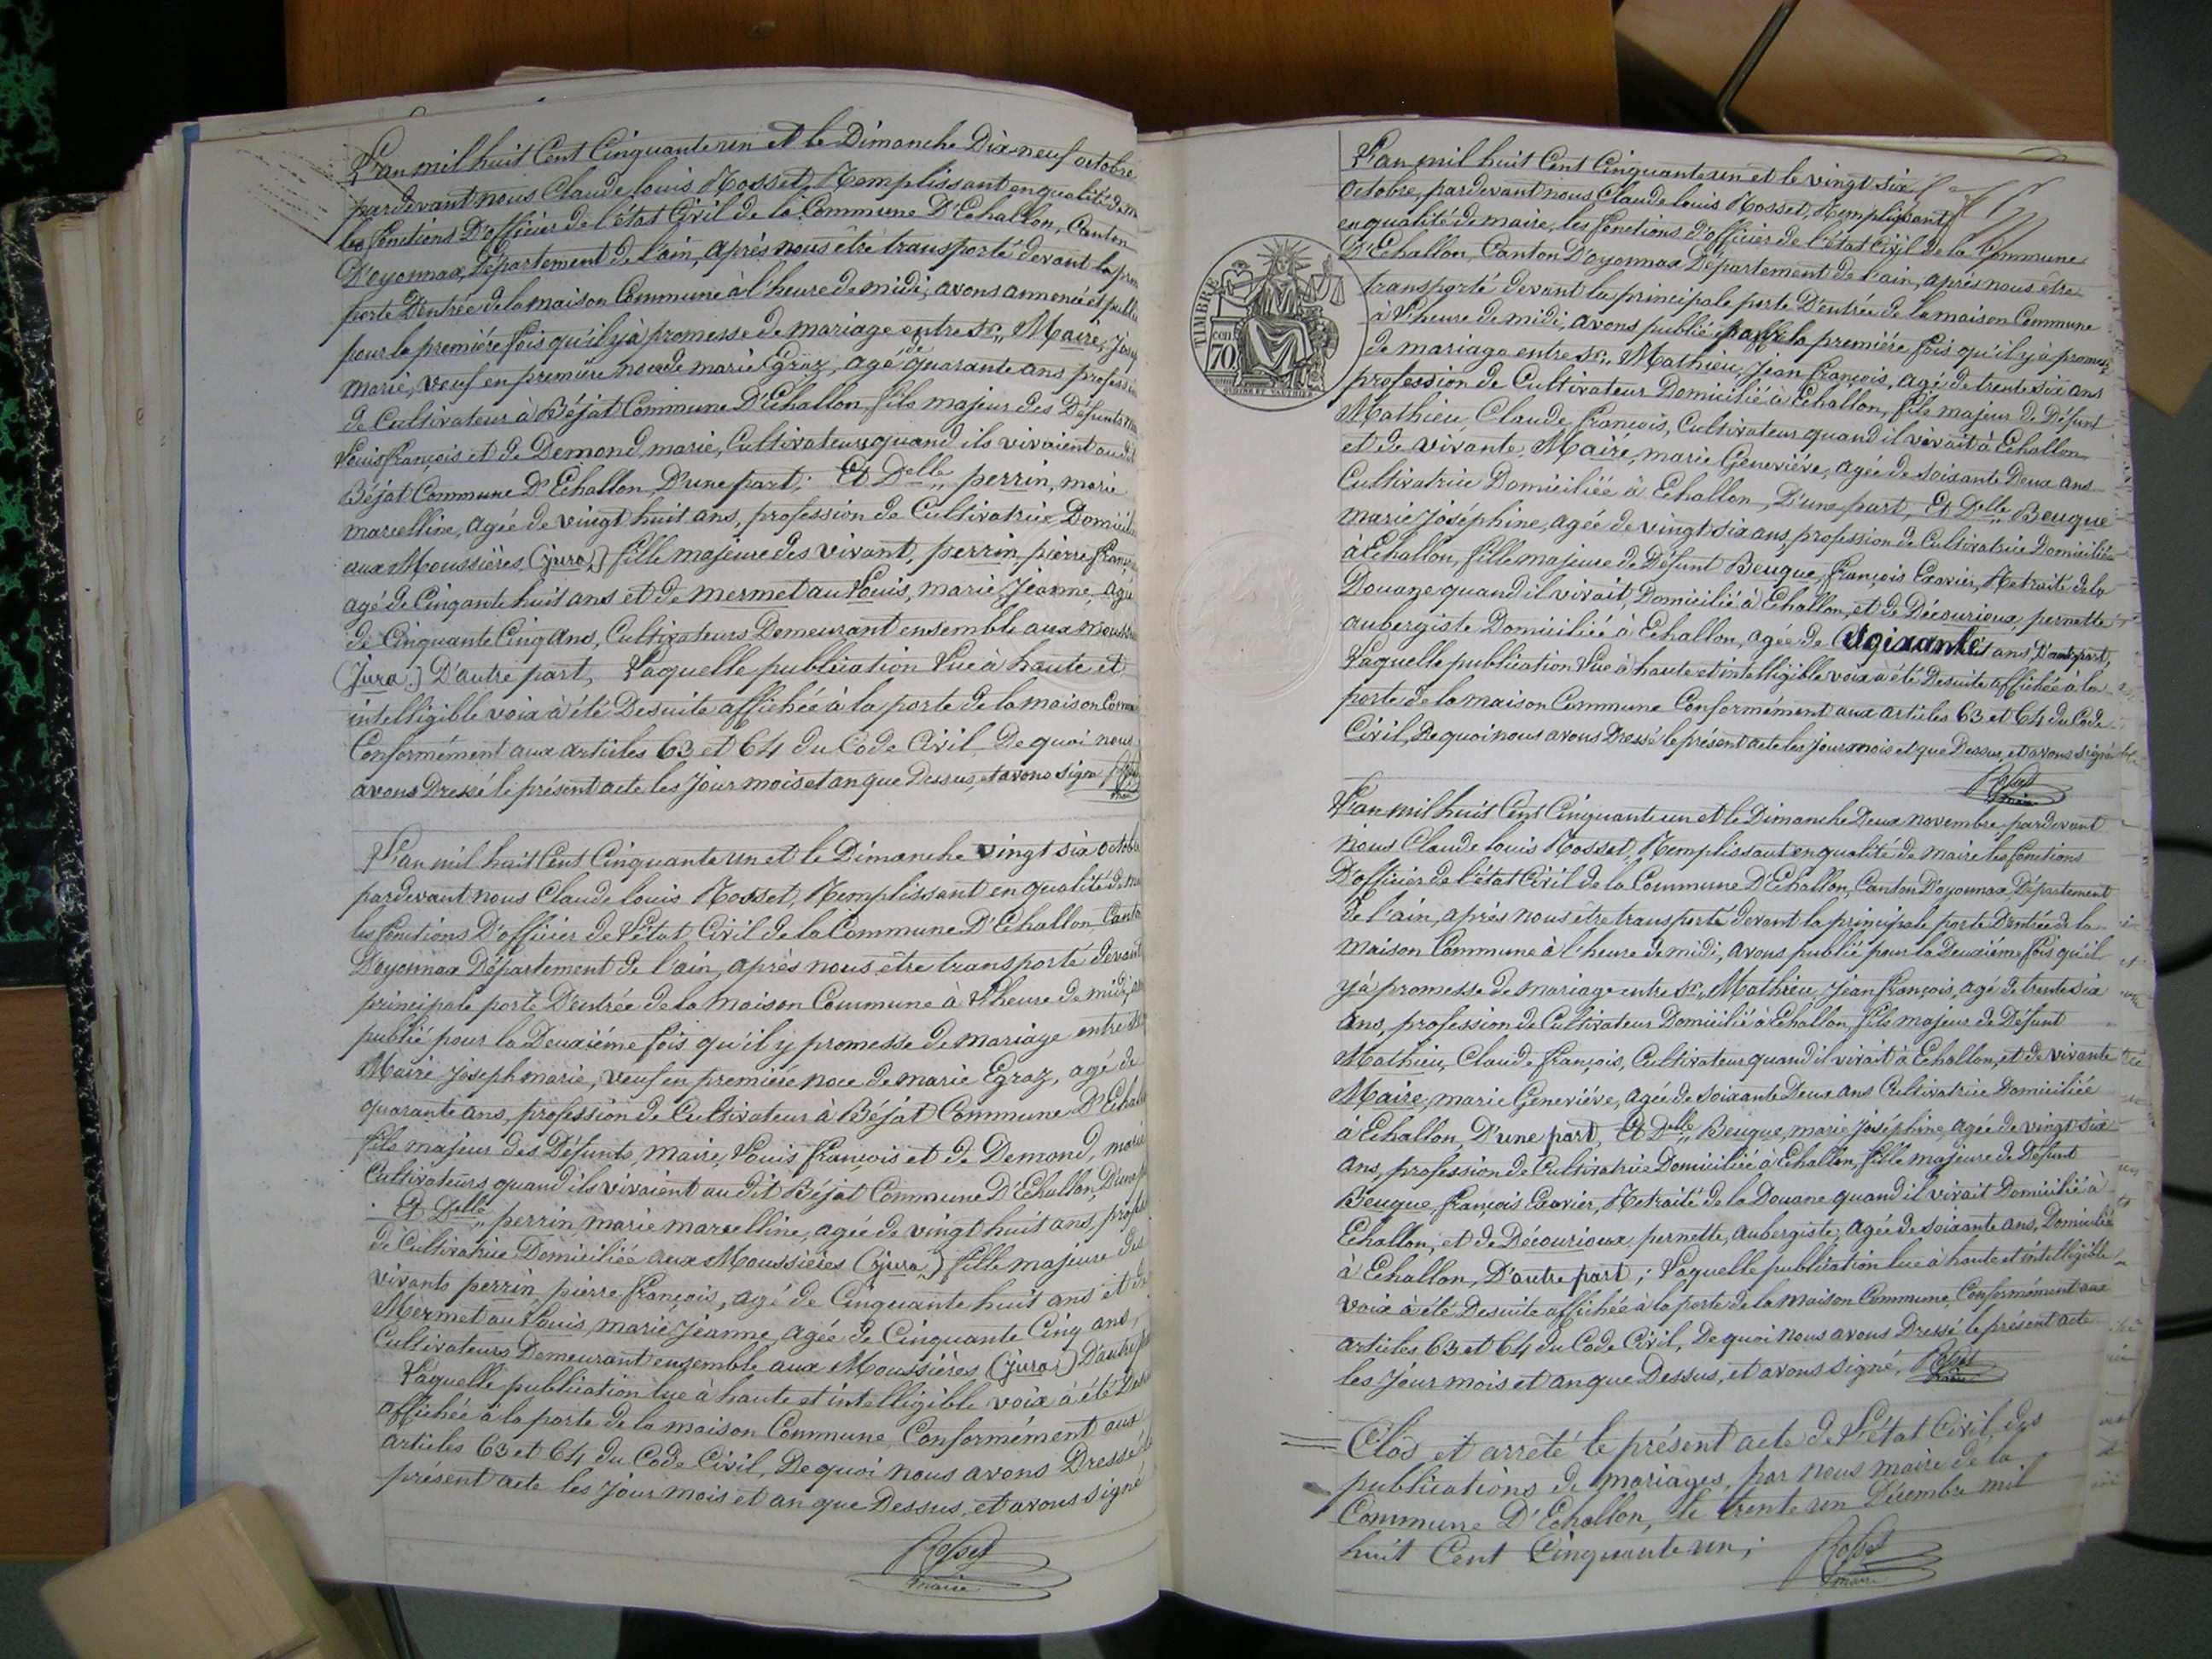 L'an mil huit Cent Cinquante un et le Dimanche Dix neuf octobre
pardevant nous Claude louis Rosset, Remplissant en qualité de
les fonctions D'officier de l'état Civil de la Commune D'Echallon, Canton
D'oyonnax, Département de l'ain, après nous être transporté devant la
porte D'entrée de la maison Commune à l'heure de midi, avons annoncé et
pour la première fois qu'il y à promesse de mariage entre Sr. Maire,
marie, veuf en première noce de marie Egraz, agé de quarante ans
de Cultivateur à Béjat Commune D'Echallon, fils majeur des Défunts
Louis françois et de Demond, marie, Cultivateurs quand ils vivaient
Béjat Commune D'Echallon, D'une part; Et Delle perrin, marie
marcelline, agée de vingt huit ans, profession de Cultivatrice
aux Moussières (jura) fille majeure des vivant, perrin, pierre
agé de Cinqante huit ans et de mermet au Louis, marie Jeanne,
de Cinquante Cinq ans, Cultivateurs Demeurant ensemble aux
(Jura) D'autre part, Laquelle publication Lue à haute et
intelligible voix à été Desuite affichée à la porte de la maison
Conformément aux articles 63 et 64 du Code Civil, De quoi nous
avons Dressé le présent acte les Jour mois et an que Dessus, et avons signé
L'an mil huit Cent Cinquante un et le Dimanche vingt six
pardevant nous Claude louis Rosset, Remplissant en qualité de
les fonctions D'officier de l'état Civil de la Commune D'Echallon
D'oyonnax Département de l'ain, après nous être transporté
principale porte D'entrée de la maison Commune à l'heure de midi,
publié pour la Deuxième fois qu'il y promesse de mariage entre
Maire Joseph marie, veuf en première noce de marie Egraz, agé de
quarante ans, profession de Cultivateur à Béjat Commune
fils majeur des Défunts, maire, Louis françois et de Demond,
Cultivateurs quand ils vivaient au dit Béjat Commune D'Echallon,
Et Delle perrin marie marcelline, agée de vingt huit ans,
de Cultivatrice Domiciliée aux Moussières (jura) fille majeure des
vivants perrin pierre françois, agé de Cinquante huit ans et
Mermet au Louis, marie Jeanne, agée de Cinquante Cinq ans,
Cultivateurs Demeurant ensemble aux Moussières (jura)
Laquelle publication lue à haute et intelligible voix à été
affichée à la porte de la maison Commune Conformément aux
articles 63 et 64 du Code Civil, De quoi nous avons Dressé
présent acte les Jour mois et an que Dessus, et avons signé
Rosset
maire
L'an mil huit Cent Cinquante un et le vingt six
octobre, pardevant nous Claude louis Rosset, Remplissant
en qualité de maire, les fonctions d'officier de l'état Civil de la Commune
D'Echallon, Canton D'oyonnax Département de l'ain, après nous être
transporté devant la principale porte D'entrée de la maison Commune
à l'heure de midi, avons publié la première fois qu'il y à
de mariage entre Sr. Mathieu, Jean françois, agé de trente six ans
profession de Cultivateur Domicilié à Echallon, fils majeur de Défunt
Mathieu, Claude, françois, Cultivateur quand il vivait à Echallon
et de vivante, Maire, marie Geneviève, agée de soixante Deux ans
Cultivatrice Domiciliée à Echallon, D'une part, Et Delle Beuque
marie Joséphine, agée de vingt six ans, profession de Cultivatrice Domiciliée
à Echallon, fille majeure de Défunt Beuque, françois Exavier, Retraité de la
Douane quand il vivait, Domicilié à Echallon, et de Décourioux pernette
aubergiste Domiciliée à Echallon, agée de soixante ans, D'autre part,
Laquelle publication Lue à haute et intelligible voix à été Desuite affichée à la
porte de la maison Commune Conformément aux articles 63 et 64 du Code
Civil, De quoi nous avons Dressé le présent acte les Jour mois et que Dessus, et avons signé
Rosset
maire
TIMBRE
70
L'an mil huit Cent Cinquante un et le Dimanche Deux novembre pardevant
nous Claude louis Rosset, Remplissant en qualité de maire les fonctions
D'officier de l'état Civil de la Commune D'Echallon, Canton D'oyonnax, Département
de l'ain, après nous être transporté devant la principale porte D'entrée de la
maison Commune à l'heure de midi, avons publié pour la Deuxième fois qu'il
y à promesse de mariage entre Sr. Mathieu, Jean françois, agé de trente six
ans, profession de Cultivateur Domicilié à Echallon, fils majeur de Défunt
Mathieu, Claude françois, Cultivateur quand il vivait à Echallon, et de vivante
Maire, marie Geneviève, agée de soixante Deux ans Cultivatrice Domiciliée
à Echallon, D'une part, Et Delle Beuque, marie joséphine, agée de vingt six
ans, profession de Cultivatrice Domiciliée à Echallon, fille majeure de Défunt
Beuque, françois Exavier, Retraité de la Douane quand il vivait Domicilié à
Echallon, et de Décourioux pernette, aubergiste, agée de soixante ans, Domiciliée
à Echallon, D'autre part; Laquelle publication lue à haute et intelligible
voix à été Desuite affichée à la porte de la maison Commune, Conformément aux
articles 63 et 64 du Code Civil, De quoi nous avons Dressé le présent acte
les Jour mois et an que Dessus, et avons signé, Rosset
maire
Clos et arrêté le présent acte de l'état Civil, des
publications de mariages, par nous maire de la
Commune D'Echallon, le trente un Décembre mil
huit Cent Cinquante un; Rosset
maire